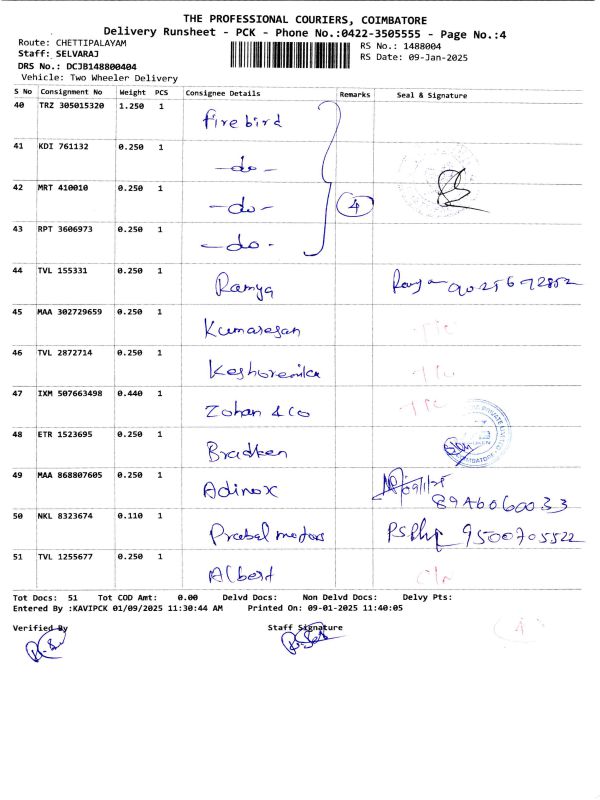 THE PROFESSIONAL COURIERS, COIMBATORE
Delivery Runsheet - PCK - Phone No.:0422-3505555 - Page No.:4
Route: CHETTIPALAYAM
RS No.: 1488004
Staff: SELVARAJ
RS Date: 09-Jan-2025
DRS No.: DCJB148800404
Vehicle: Two Wheeler Delivery
S No Consignment No Weight PCS Consignee Details Remarks Seal & Signature
40 TRZ 305015320 1.250 1 firebird
41 KDI 761132 0.250 1 -do-
42 MRT 410010 0.250 1 -do- 4
43 RPT 3606973 0.250 1 -do-
44 TVL 155331 0.250 1 Ramya
45 MAA 302729659 0.250 1 Kumaresan
46 TVL 2872714 0.250 1
47 IXM 507663498 0.440 1 Zohan & Co
48 ETR 1523695 0.250 1 Bradken
49 MAA 868807605 0.250 1 Adinox 09/1/25
50 NKL 8323674 0.110 1 Prabal motors 9500705522
51 TVL 1255677 0.250 1 Albert
Tot Docs: 51 Tot COD Amt: 0.00 Delvd Docs: Non Delvd Docs: Delvy Pts:
Entered By :KAVIPCK 01/09/2025 11:30:44 AM Printed On: 09-01-2025 11:40:05
Verified By Staff Signature